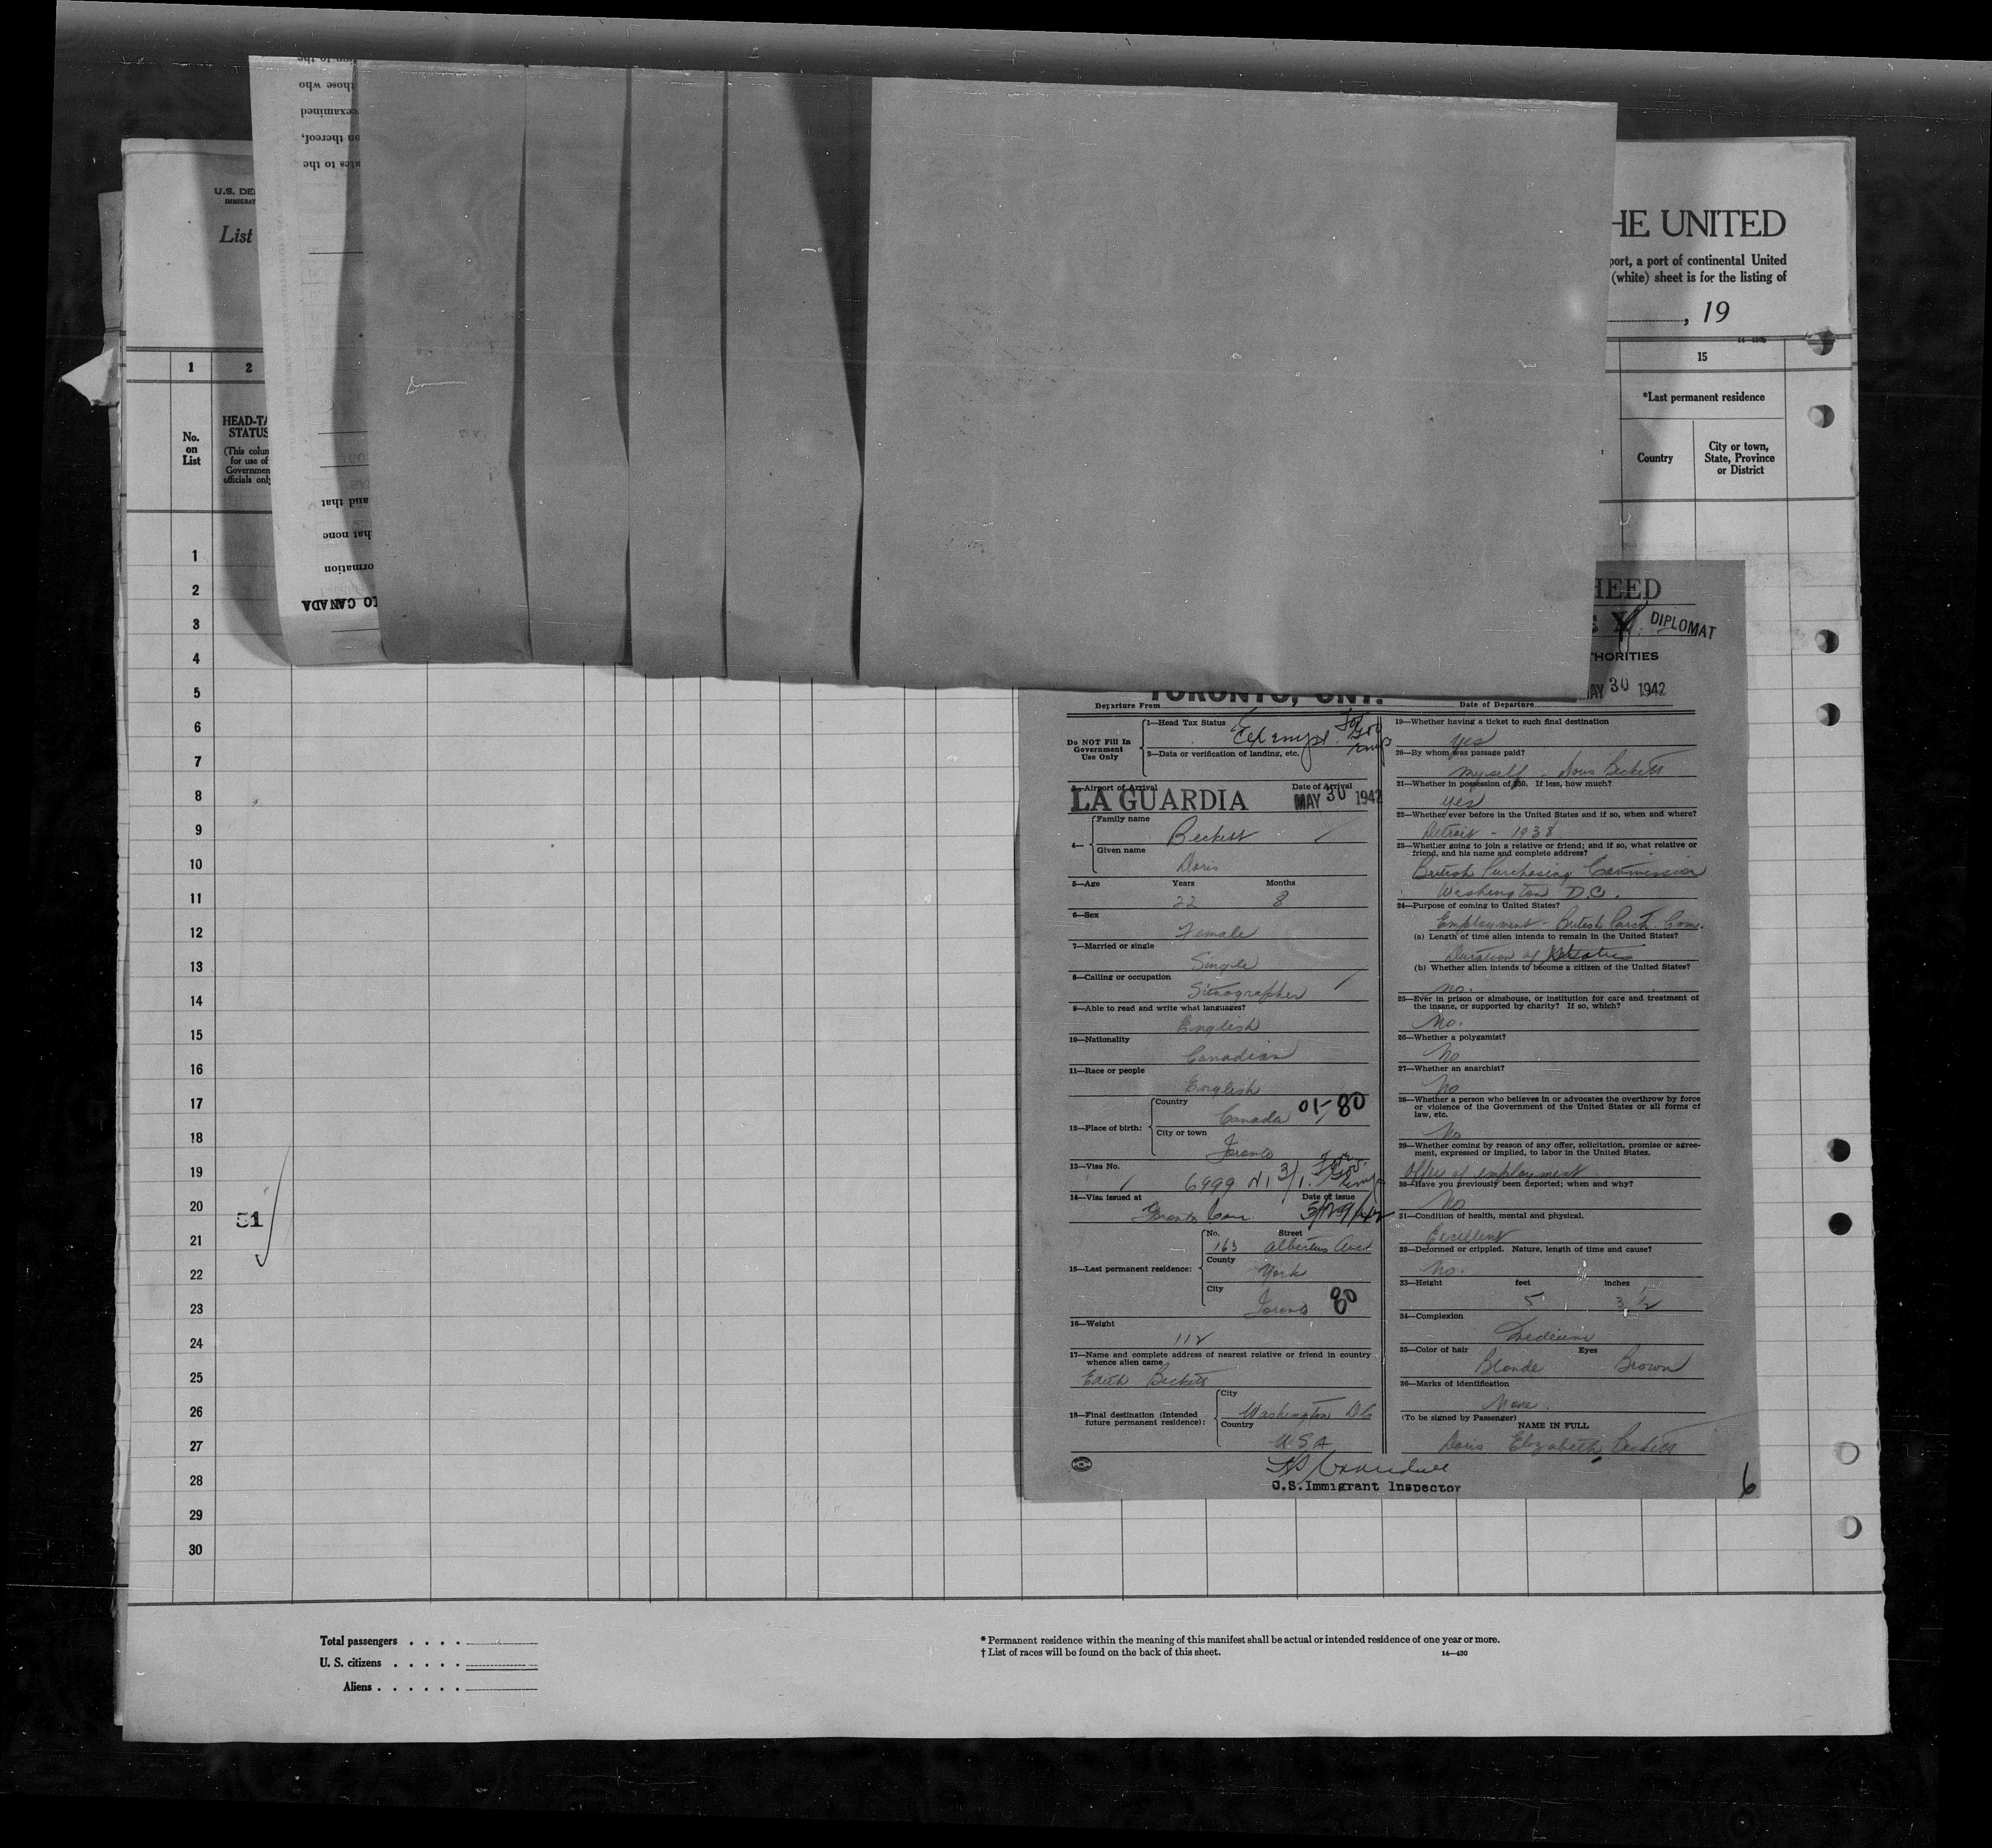 U.S. DE
IMMIGRAT
List
HE UNITED
port, a port of continental United
(white) sheet is for the listing of
, 19
1
2
15
No.
on
List
HEAD-TA
STATUS
(This colum
for use of
Governmen
officials only
*Last permanent residence
Country
City or town,
State, Province
or District
tes to the
on thereof,
examined
those who
tion to the
LO CANADA
ormation
hat none
and that
1
2
3
4
5
6
7
8
9
10
11
12
13
14
15
16
17
18
19
20
21
22
23
24
25
26
27
28
29
30
51
HEED
DIPLOMAT
THORITIES
TORONTO, ONT.
MAY 30 1942
Departure From
Date of Departure
Do NOT Fill In
Government
Use Only
1—Head Tax Status
Exempt
2—Data or verification of landing, etc.
3—Airport of Arrival
Date of Arrival
LA GUARDIA
MAY 30 1942
4—
Family name
Beckett
Given name
Doris
5—Age Years Months
22 8
6—Sex
Female
7—Married or single
Single
8—Calling or occupation
Stenographer
9—Able to read and write what languages?
English
10—Nationality
Canadian
11—Race or people
English
12—Place of birth:
Country
Canada 01-80
City or town
Toronto
13—Visa No.
6999
14—Visa issued at Date of issue
Toronto Can. 5/29/42
15—Last permanent residence:
No. Street
163 Albertus Ave.
County
York
City
Toronto 80
16—Weight
112
17—Name and complete address of nearest relative or friend in country
whence alien came
Edith Beckett
18—Final destination (Intended
future permanent residence):
City
Washington DC
Country
U.S.A
U.S. Immigrant Inspector
19—Whether having a ticket to such final destination
Yes
20—By whom was passage paid?
myself - Doris Beckett
21—Whether in possession of $50. If less, how much?
yes
22—Whether ever before in the United States and if so, when and where?
Detroit - 1938
23—Whether going to join a relative or friend; and if so, what relative or
friend, and his name and complete address?
British Purchasing Commission
Washington D.C.
24—Purpose of coming to United States?
Employment - British Purch. Com.
(a) Length of time alien intends to remain in the United States?
Duration of
(b) Whether alien intends to become a citizen of the United States?
no.
25—Ever in prison or almshouse, or institution for care and treatment of
the insane, or supported by charity? If so, which?
No.
26—Whether a polygamist?
No
27—Whether an anarchist?
No
28—Whether a person who believes in or advocates the overthrow by force
or violence of the Government of the United States or all forms of
law, etc.
No
29—Whether coming by reason of any offer, solicitation, promise or agree-
ment, expressed or implied, to labor in the United States.
Offer of employment
30—Have you previously been deported; when and why?
No
31—Condition of health, mental and physical.
Excellent
32—Deformed or crippled. Nature, length of time and cause?
No.
33—Height feet inches
5 3 1/2
34—Complexion
Medium
35—Color of hair Eyes
Blonde Brown
36—Marks of identification
None.
(To be signed by Passenger)
NAME IN FULL
Doris Elizabeth Beckett
6
Total passengers . . . .
U. S. citizens . . . . .
Aliens . . . . . .
* Permanent residence within the meaning of this manifest shall be actual or intended residence of one year or more.
† List of races will be found on the back of this sheet.
14—430